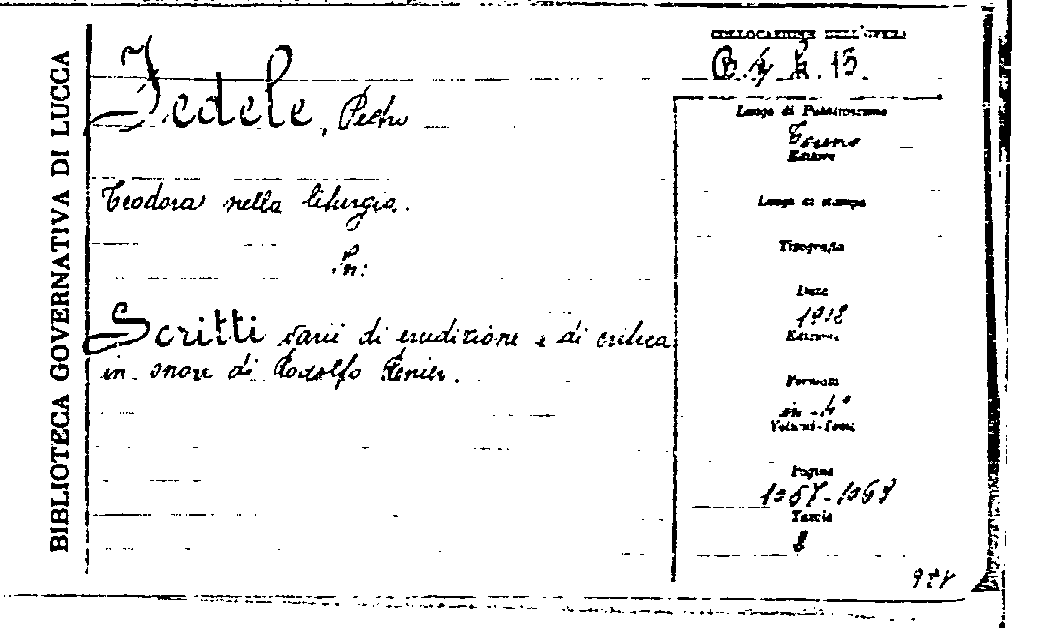 BIBLIOTECA GOVERNATIVA DI LUCCA
COLLOCAZIONE DELL'OPERA
13.
Fedele, Pietro
Teodora nella liturgia.
In:
Scritti varii di erudizione e di critica
in onore di Rodolfo Renier.
Luogo di Pubblicazione
Torino
Editore
Luogo di stampa
Tipografia
Data
1912
Edizione
Formato
in-4°
Volumi-Tomi
Pagine
1057-1067
Tavole